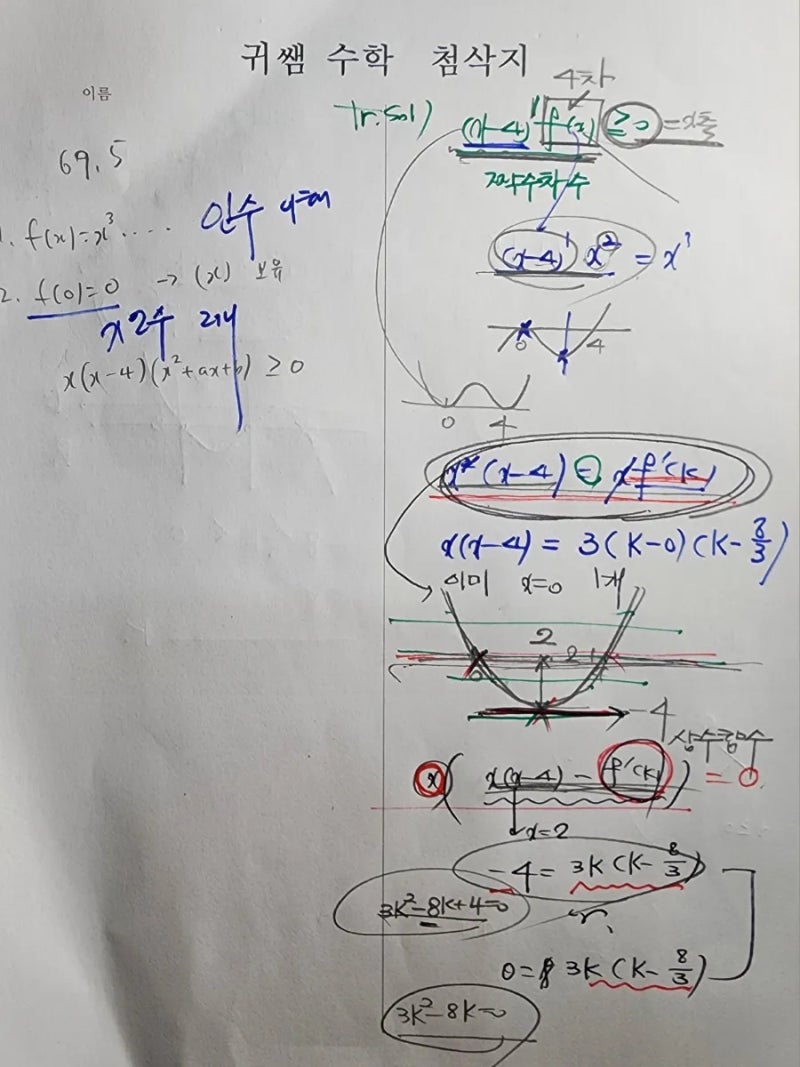 귀쌤 수학 첨삭지
이름
69.5
1. f(x)=x³ ....
인수
2. f(0)=0 → (x) 보유
x(x-4)(x²+ax+b) ≥ 0
4차
Tr.Sol) (x-4)¹ f(x) ≥0
(x-4)¹ x² = x³
0 4
0 4
x²(x-4) = x f'(k)
x(x-4) = 3(k-0)(k-8/3)
이미 x=0 1개
2
-4
상수함수
x( x(x-4) - f'(k) ) = 0
x=2
-4 = 3k(k-8/3)
3k²-8k+4=0
0= 3k(k-8/3)
3k²-8k=0